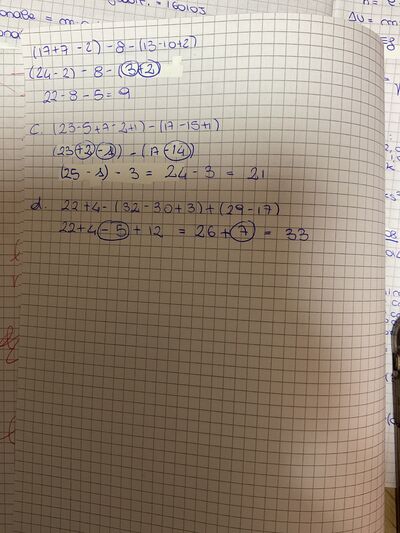 = 160103
(17+7-2)-8-(13-10+2)
(24-2)-8-(3+2)
22-8-5=9
c. (23-5+7-2+1)-(17-15+1)
(23+2-1)-(17-14)
(25-1)-3= 24-3 = 21
d. 22+4-(32-30+3)+(29-17)
22+4-5+12 = 26+7 = 33